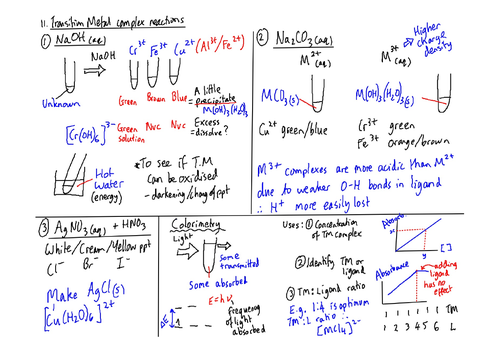 11. Transition Metal complex reactions
① NaOH (aq)
NaOH
Cr³⁺ Fe³⁺ Cu²⁺ (Al³⁺/Fe²⁺)
Unknown
Green Brown Blue
A little
= precipitate
M(OH)₃(H₂O)₃
[Cr(OH)₆]³⁻
Green solution
Nvc Nvc
Excess
= dissolve?
Hot
Water
(energy)
*To see if T.M
can be oxidised
- darkening/change of ppt
② Na₂CO₃(aq)
M²⁺ (aq)
M³⁺ (aq)
Higher
charge
density
MCO₃(s)
M(OH)₃(H₂O)₃(s)
Cu²⁺ green/blue
Cr³⁺ green
Fe³⁺ orange/brown
M³⁺ complexes are more acidic than M²⁺
due to weaker O-H bonds in ligand
∴ H⁺ more easily lost
③ AgNO₃(aq) + HNO₃
White/Cream/Yellow ppt
Cl⁻ Br⁻ I⁻
Make AgCl(s)
[Cu(H₂O)₆]²⁺
Colorimetry
Light
Some
transmitted
Some absorbed
E=hν
ΔE
frequency
of light
absorbed
Uses: ① Concentration
of TM complex
② Identify TM or
ligand
③ TM: Ligand ratio
E.g. 1:4 is optimum
TM:L ratio ∴
[MCl₄]²⁻
Absorb.
x
y
[ ]
Absorbance
adding
ligand
has no
effect
1 1 1 1 1 1 TM
1 2 3 4 5 6 L